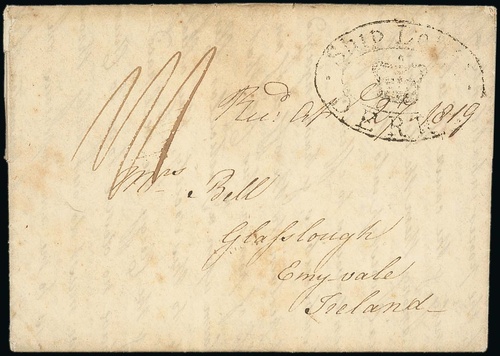 Ship Le
Recd. 1819
Mrs Bell
Glaslough
Emy-vale
Ireland